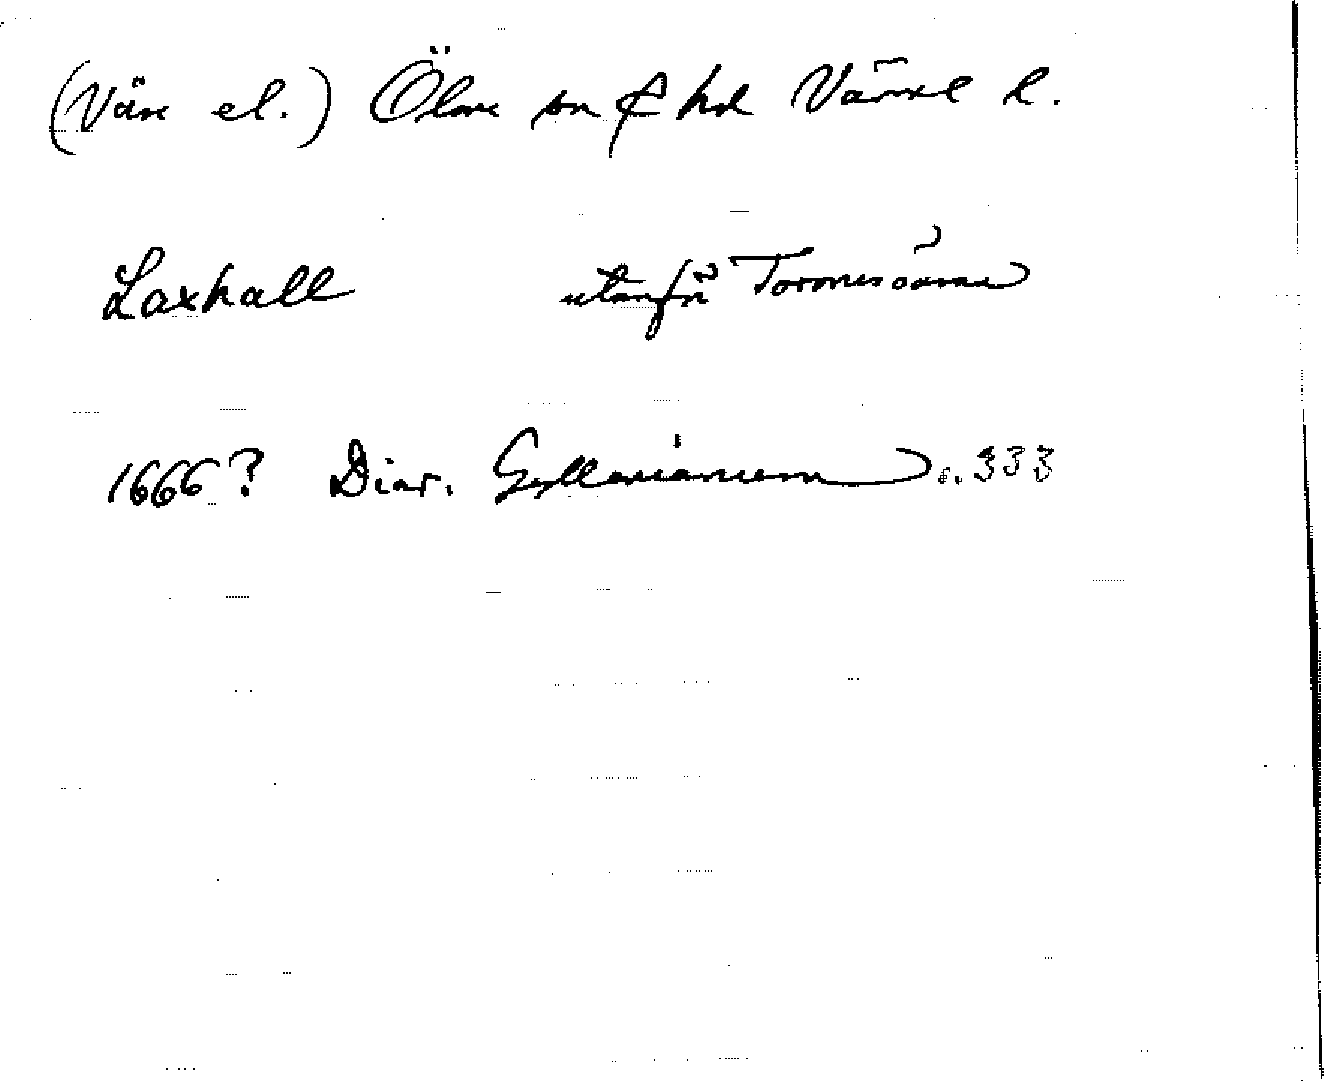 (Väse el.) Ölme sn ₵ hd Värml l.
Laxhall utanför Tormesöarna
1666? Diar. Gyllenianum s. 333